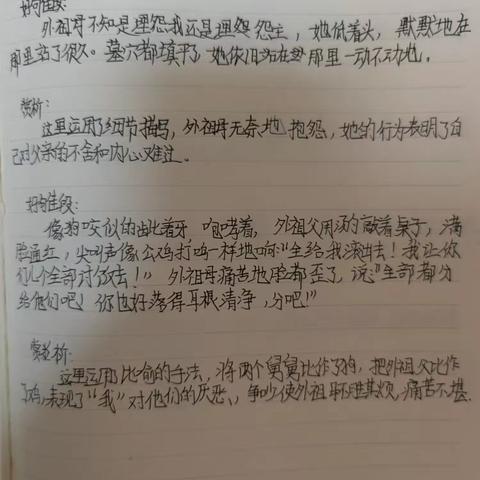 好句佳段:
外祖母不知是埋怨我还是埋怨怨主，她低着头，默默地在
那里站了很久。墓穴都填平了，她依旧站在那里一动不动地。
赏析:
这里运用了细节描写，外祖母无奈地抱怨，她的行为表明了自
己对父亲的不舍和内心难过。
好句佳段:
像狗咬似的龇着牙，咆哮着，外祖父用汤勺敲着桌子，满
脸通红，尖叫声像公鸡打鸣一样地响:"全给我滚出去！我让你
们几个全部讨饭去！"外祖母痛苦地脸都歪了，说:"全部都分
给他们吧！你也好落得耳根清净，分吧！"
赏析:
这里运用了比喻的手法，将两个舅舅比作了狗，把外祖父比作
了鸡，表现了"我"对他们的厌恶、争吵使外祖母不堪其烦，痛苦不堪.